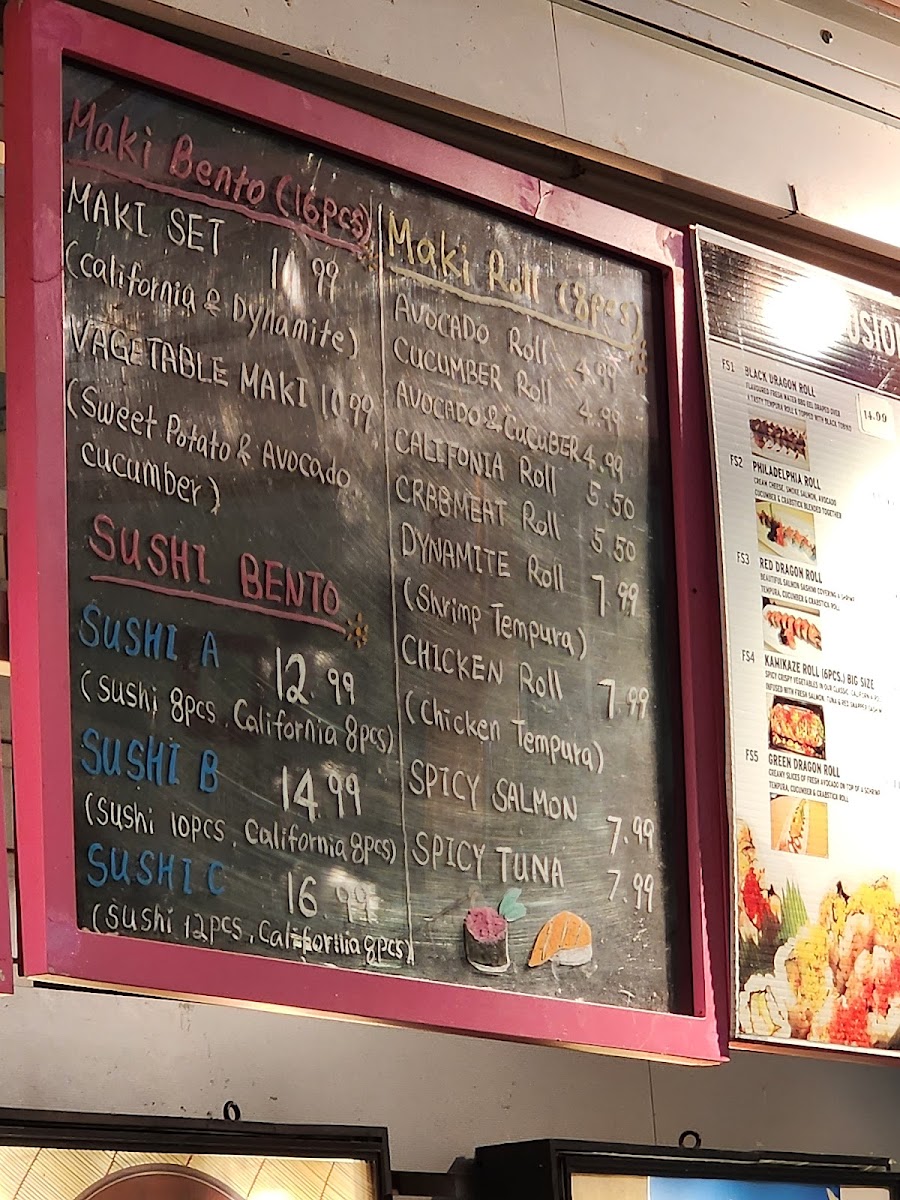 Maki Bento (16pcs)
MAKI SET
(California & Dynamite)
VAGETABLE MAKI
(Sweet Potato & Avocado
cucumber)
SUSHI BENTO
SUSHI A
12.99
(Sushi 8pcs, California 8pcs)
SUSHI B
14.99
(Sushi 10pcs, California 8pcs)
SUSHI C
16.99
(Sushi 12pcs, California 8pcs)
Maki Roll (8pcs)
AVOCADO Roll 4.99
CUCUMBER Roll 4.99
AVOCADO & CUCUBER 4.99
CALIFONIA Roll 5.50
CRABMEAT Roll 5.50
DYNAMITE Roll 7.99
(Shrimp Tempura)
CHICKEN Roll 7.99
(Chicken Tempura)
SPICY SALMON 7.99
SPICY TUNA 7.99
FS1 BLACK DRAGON ROLL
FLAVOURED FRESH WATER BBQ EEL DRAPED OVER
A TASTY TEMPURA ROLL & TOPPED WITH BLACK TOBIKO
14.99
FS2 PHILADELPHIA ROLL
CREAM CHEESE, SMOKE SALMON, AVOCADO
CUCUMBER & CRABSTICK BLENDED TOGETHER
FS3 RED DRAGON ROLL
BEAUTIFUL SALMON SASHIMI COVERING A SHRIMP
TEMPURA, CUCUMBER & CRABSTICK ROLL
FS4 KAMIKAZE ROLL (6PCS.) BIG SIZE
SPICY CRISPY VEGETABLES IN OUR CLASSIC CALIFORNIA
INFUSED WITH FRESH SALMON, TUNA & RED SNAPPER
FS5 GREEN DRAGON ROLL
CREAMY SLICES OF FRESH AVOCADO ON TOP OF A SHRIMP
TEMPURA, CUCUMBER & CRABSTICK ROLL